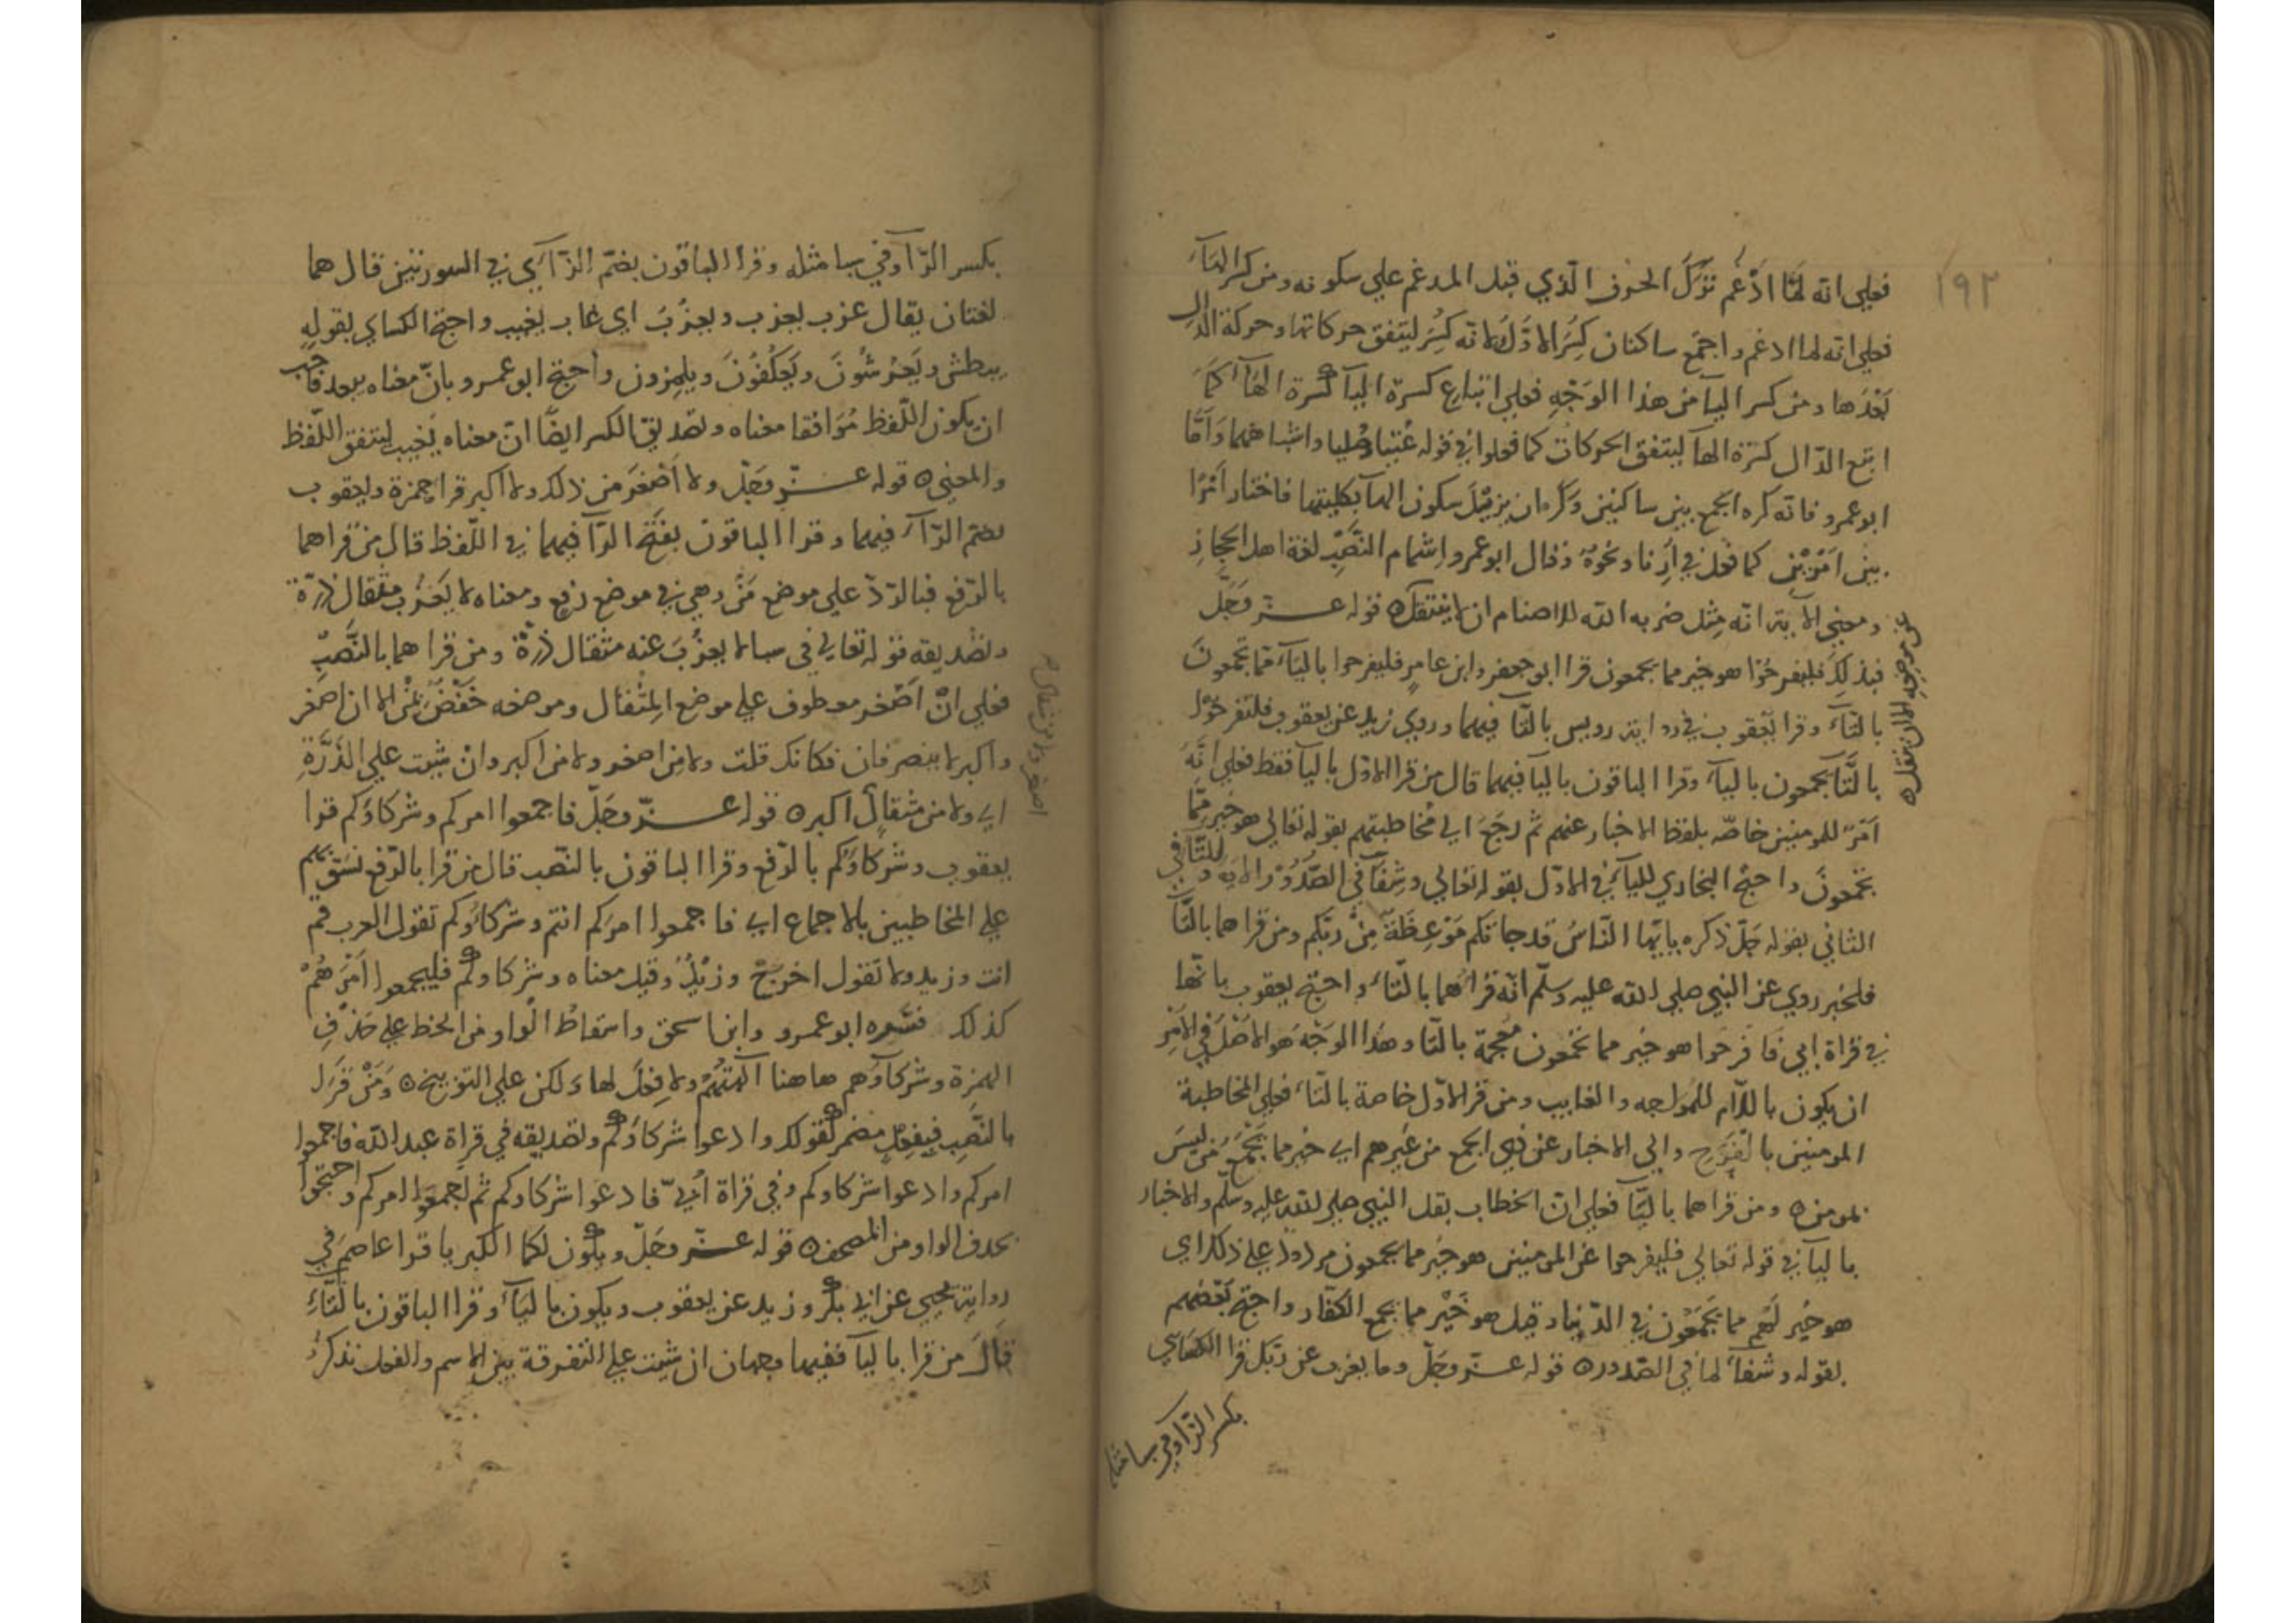 ١٩٢
فعلي انه لمّا ادغم ترك الحرف الذي قبل المدغم علي سكونه ومن كسر الهآء
فعلي انه لما ادغم واجتمع ساكنان كسر الاوّل لانه كسر ليتفق حركاتها وحركة الدال
بعدها ومن كسر اليآ من هذا الوجه فعلي اتباع كسرة اليآ كسرة الهآ كما
اتبع الدّال كسرة الهآ ليتفق الحركات كما فعلوا في قوله عتيا وصليا واشباههما وامّا
ابو عمرو فانه كره الجمع بين ساكنين وكره ان يزيل سكون الهآ بكليتها فاختار امرًا
بين امرين كما فعل في ارنا ونحوه وقال ابو عمرو اشمام النّصب لغة اهل الحجاز
ومعني الآية انه مثل ضربه الله للاصنام ان لا ينتقل ه قوله عــز وجلّ
عن موضعه الا ان ينقل ه
فبذلك فليفرحوا هو خير مما يجمعون قرا ابو جعفر وابن عامر فليفرحوا باليآء مما تجمعون
بالتّآء وقرا يعقوب في رواية رويس بالتآ فيهما وروي زيد عن يعقوب فلتفرحوا
بالتّا يجمعون باليآء وقرا الباقون باليآ فيهما قال من قرا الاوّل باليآ فقط فعلي انّه
امر للمومنين خاصّه بلفظ الاخبار عنهم ثم رجع الي مخاطبتهم بقوله تعالي هو خير ممّا
تجمعون واحتج البخاري لليآء في الاوّل بقوله تعالي وشفآ لما في الصّدور الايه وللتّآ في
الثاني بقوله جلّ ذكره يايّها النّاس قد جاتكم موعظة من ربّكم ومن قراهما بالتّآ
فلخبر روي عن النبي صلي الله عليه وسلّم انّه قراهما بالتّآء واحتج يعقوب بانّها
في قراة ابي فافرحوا هو خير مما تجمعون معجمة بالتّا وهذا الوجه هو الاصل في الامر
ان يكون باللام للمواجه والغايب ومن قرا الاوّل خاصة بالتّآء فعلي المخاطبة
المومنين بالفرح والي الاخبار عن ذي الجمع من غيرهم اي خير مما يجمع من ليس
بمومن ه ومن قراهما باليّآ فعلي ان الخطاب بقل النبي صلي الله عليه وسلّم والاخبار
باليآ في قوله تعالي فليفرحوا عن المومنين هو خير مما يجمعون مردود علي ذلك اي
هو خير لهم مما يجمعون في الدّنيا وقيل هو خير مما يجمع الكفّار واحتج بعضهم
بقوله وشفآء لما في الصّدور ه قوله عــز وجلّ وما يعزب عن ربّك قرا الكساي
بكسر الزّا وفي سبا مثله
بكسر الزّآ وفي سبا مثله وقرا الباقون بضم الزّآي في السورتين قال هما
لغتان يقال عزب يعزب ويعزُب اي غاب يغيب واحتج الكساي بقوله
يبطش ويعرشون ويعكفون ويلمزون واحتج ابو عمرو بانّ معناه يبعد فاحب
ان يكون اللّفظ موافقا معناه وتصديق الكسر ايضًا انّ معناه يغيب ليتفق اللّفظ
والمعني ه قوله عــزّ وجلّ ولا اصغر من ذلك ولا اكبر قرا حمزة ويعقوب
بضم الرّآء فيهما وقرا الباقون بفتح الرّآ فيهما في اللّفظ قال من قراهما
بالرّفع فبالردّ علي موضع من وهي في موضع رفع ومعناه لا يعزب مثقال ذرّة
وتصديقه قوله تعالي في سبا لا يعزب عنه مثقال ذرّة ومن قراهما بالنّصب
فعلي انّ اصغر معطوف علي موضع المثقال وموضعه خفض بمن الا ان اصغر
واكبر لا ينصرفان فكانك قلت ولا من اصغر ولا من اكبر وان شيت علي الذّرّة
اي ولا من مثقال اكبر ه قوله عــزّ وجلّ فاجمعوا امركم وشركاوكم قرا
اصغر ولا من مثقال
يعقوب وشركاوكم بالرّفع وقرا الباقون بالنّصب قال من قرا بالرّفع نسق بهم
علي المخاطبين بالاجماع اي فاجمعوا امركم انتم وشركاوكم تقول العرب قم
انت وزيد ولا تقول اخرج وزيد وقيل معناه وشركاوكم فليجمعوا امرهم
كذلك فسّره ابو عمرو وابن اسحق واسقاط الواو من الخط علي حذف
الهمزة وشركآوهم هاهنا آلهتهم ولا فعل لها ولكن علي التوبيخ ه ومن قرا
بالنّصب فبفعل مضمر كقولك وادعوا شركاوكم وتصديقه في قراة عبد الله فاجمعوا
امركم وادعوا شركاوكم وفي قراة ابيّ فادعوا شركاوكم ثم اجمعوا امركم واحتجوا
بحذف الواو من المصحف ه قوله عــزّ وجلّ ويكون لكما الكبريا قرا عاصم في
رواية يحيي عن ابي بكر وزيد عن يعقوب ويكون باليآء وقرا الباقون بالتّآء
قال من قرا باليآ ففيها وجهان ان شيت علي التفرقة بين الاسم والفعل تذكر